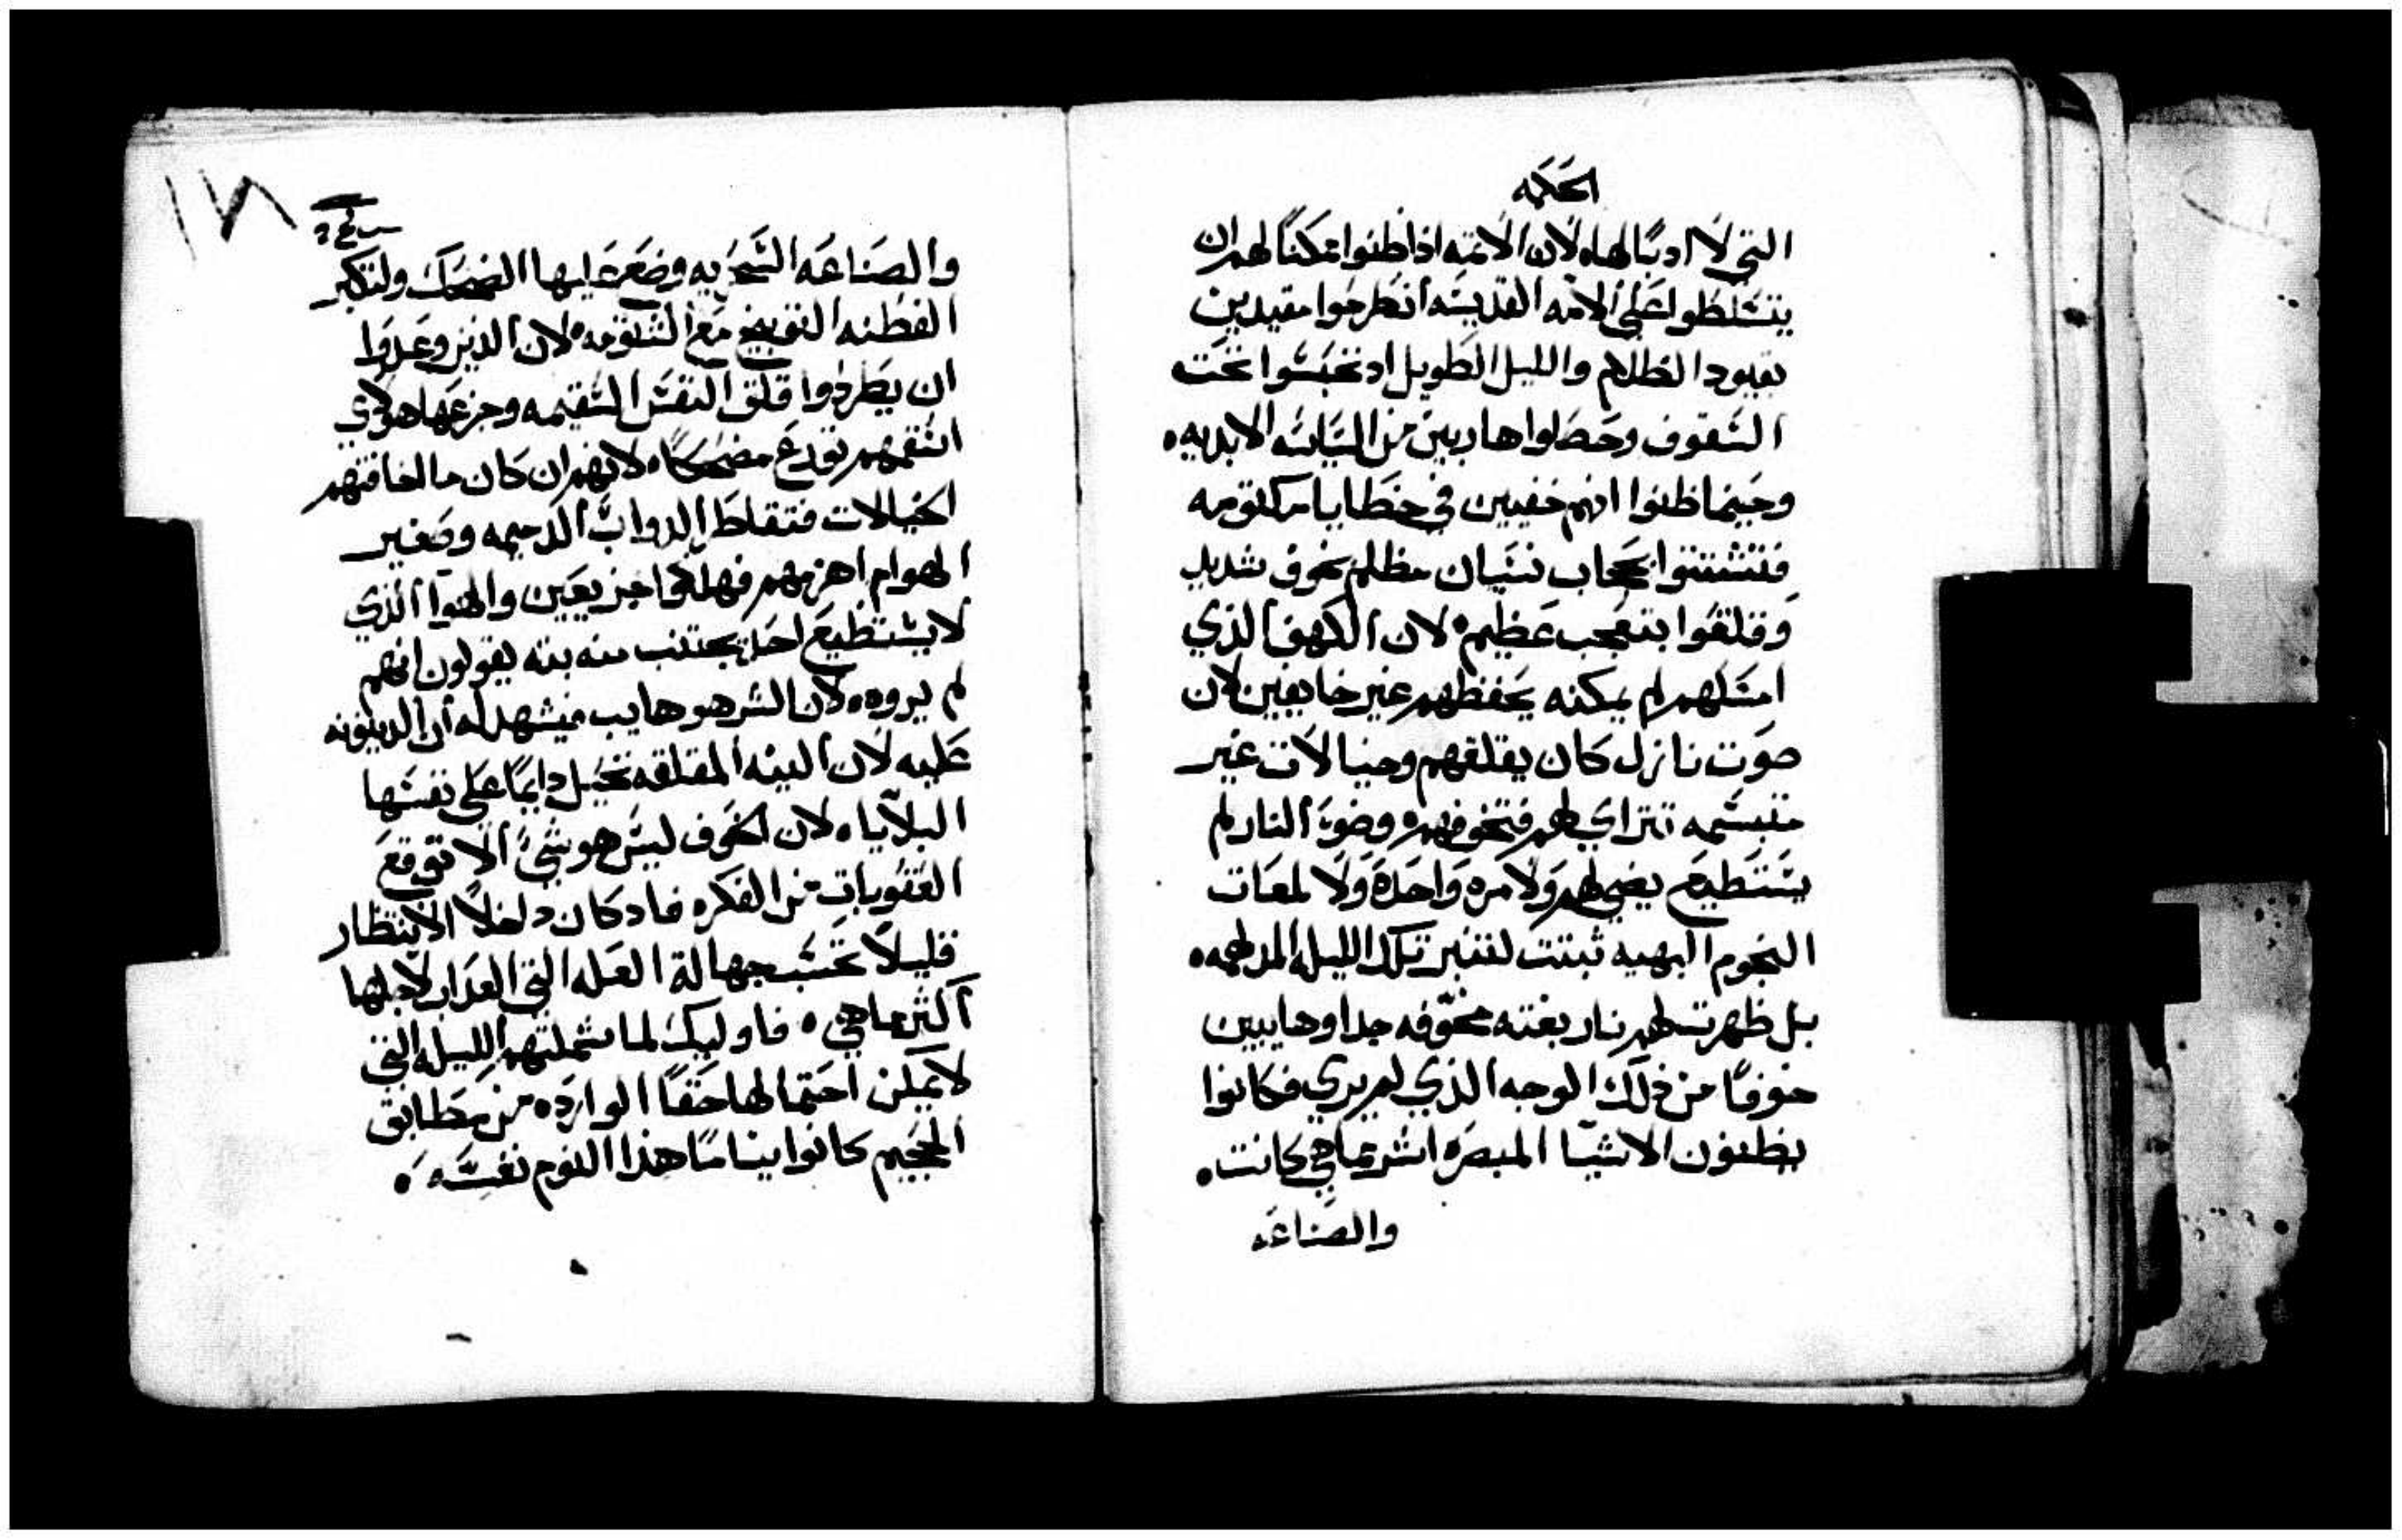 الحكمه
التي لا ادبًا لها، لان الاثمه اذا ظنوا ممكنًا لهم ان
يتسلطوا على الامه القديسه انطرحوا مقيدين
بقيود الظلام والليل الطويل اذ تحبسوا تحت
السقوف وحصلوا هاربين من السياسه الابديه .
وحينما ظنوا انهم خفيين في خطايا مكتومه
فتشتتوا بحجاب نسيان مظلم بخوف شديد
وقلقوا بتعجب عظيم . لان الكهف الذي
امسكهم لم يمكنه يحفظهم غير خايفين لان
صوت نازل كان يقلقهم وخيالات غير
متبسمه تتراي لهم فتخوفهم . وضوء النار لم
يستطيع يضي لهم ولا مره واحدة ولا لمعات
النجوم البهيه ثبتت لتنير تلك الليله المدلهمه .
بل ظهرت لهم نار بغته مخوّفه جدا وهايبين
خوفًا من ذلك الوجه الذي لم يري فكانوا
يظنون الاشيا المبصره اشر مما هي كانت .
والصناعه
١٧٨
والصناعه السحريه وضع عليها الضحك ولتكبر
الفطنه التوبيخ مع الشتومه . لان الذين وعدوا
ان يطردوا قلق النفس السقيمه وجزعها هولاي
اسقمهم تورع مضحكا . لانهم ان كان ما اخافتهم
الخيالات فتقلط الدواب الدحيمه وصفير
الهوام اهزمهم فهلكوا جزيعين والهوا الذي
لا يستطيع احد يجتنب منه بته يقولون انهم
لم يروه . لان الشر هو هايب فيشهد له ان الدينونه
عليه لان النيه المقلقه تخيل دايمًا على نفسها
البلايا . لان الخوف ليس هو شيءً الا توقع
العقوبات من الفكره فاد كان داخلاً الانتظار
قليلاً تحسب جهالة العله التي العذاب لاجلها
اكثر مما هي . فاوليك لما شملتهم الليله التي
لا يمكن احتمالها حقًا الوارده من مطابق
الجحيم كانوا ينامًا هذا النوم نفسه .